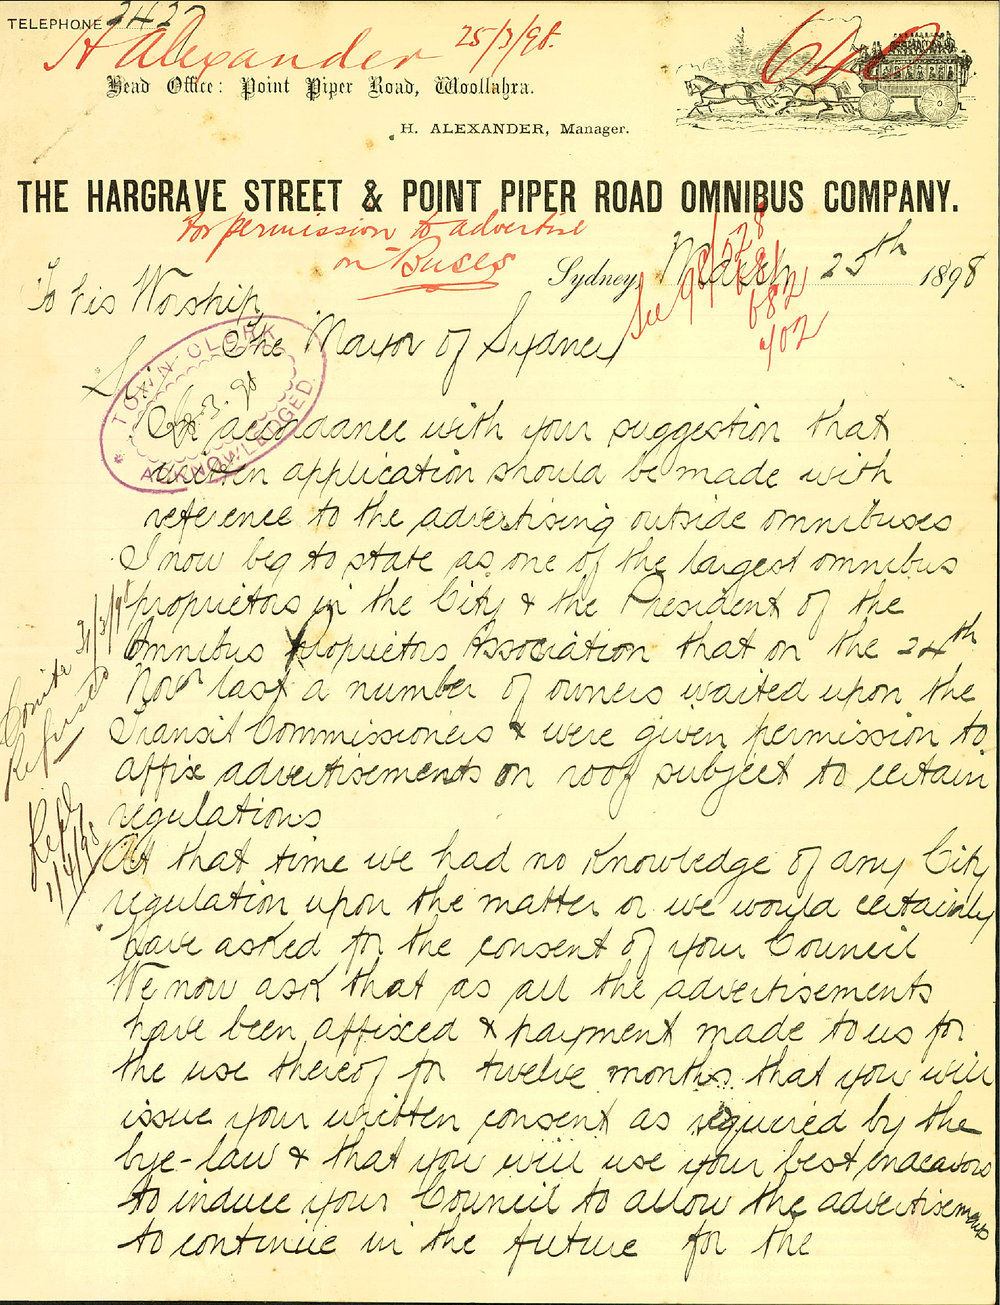 TELEPHONE 2427
H Alexander 25/3/98.
640
Head Office: Point Piper Road, Woollahra.
H. ALEXANDER, Manager.
THE HARGRAVE STREET & POINT PIPER ROAD OMNIBUS COMPANY.
For permission to advertise
on "Buses
Sydney, March 25th 1898
See 98/528
681
682
702
To His Worship
The Mayor of Sydney
Sir
TOWN CLERK
ACKNOWLEDGED.
In accordance with your suggestion that
written application should be made with
reference to the advertising outside omnibuses
I now beg to state as one of the largest omnibus
proprietors in the City & the President of the
Omnibus Proprietors Association that on the 24th
Novr last a number of owners waited upon the
Transit Commissioners & were given permission to
affix advertisements on roof subject to certain
regulations
At that time we had no knowledge of any City
regulation upon the matter or we would certainly
have asked for the consent of your Council
We now ask that as all the advertisements
have been affixed & payment made to us for
the use thereof for twelve months that you will
issue your written consent as required by the
bye-law & that you will use your best endeavors
to induce your Council to allow the advertisements
to continue in the future for the
Comite 31/3/98
Refused
Repd
1/4/98